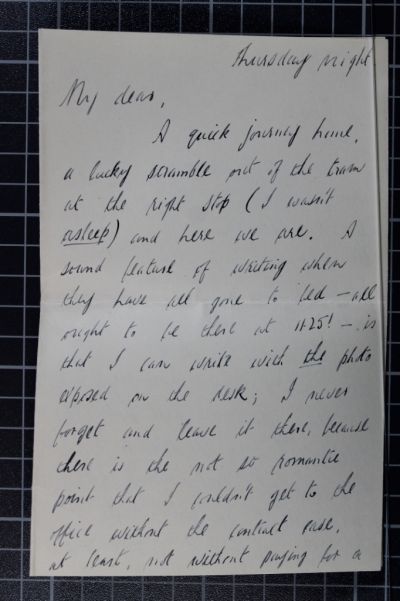 Thursday night
My dear,
A quick journey home,
a lucky scramble out of the tram
at the right stop (I wasn't
asleep) and here we are. A
sound feature of writing when
they have all gone to bed – all
ought to be there at 11.25! – is
that I can write with the photo
exposed on the desk; I never
forget and leave it there, because
there is the not so romantic
point that I couldn't get to the
office without the contract case,
at least, not without paying for a